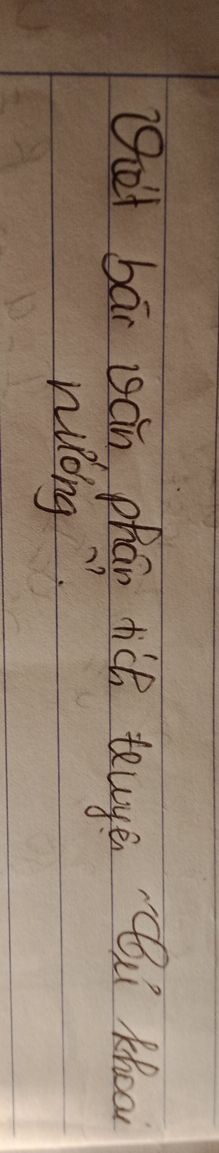 Viết bài văn phân tích truyện "Củ khoai
nướng".